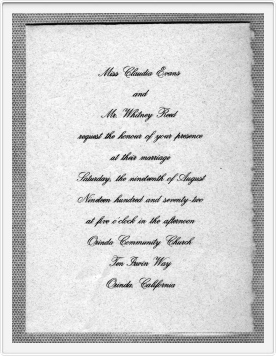 Miss Claudia Evans
and
Mr. Whitney Reed
request the honour of your presence
at their marriage
Saturday, the nineteenth of August
Nineteen hundred and seventy-two
at five o'clock in the afternoon
Orinda Community Church
Ten Irwin Way
Orinda, California